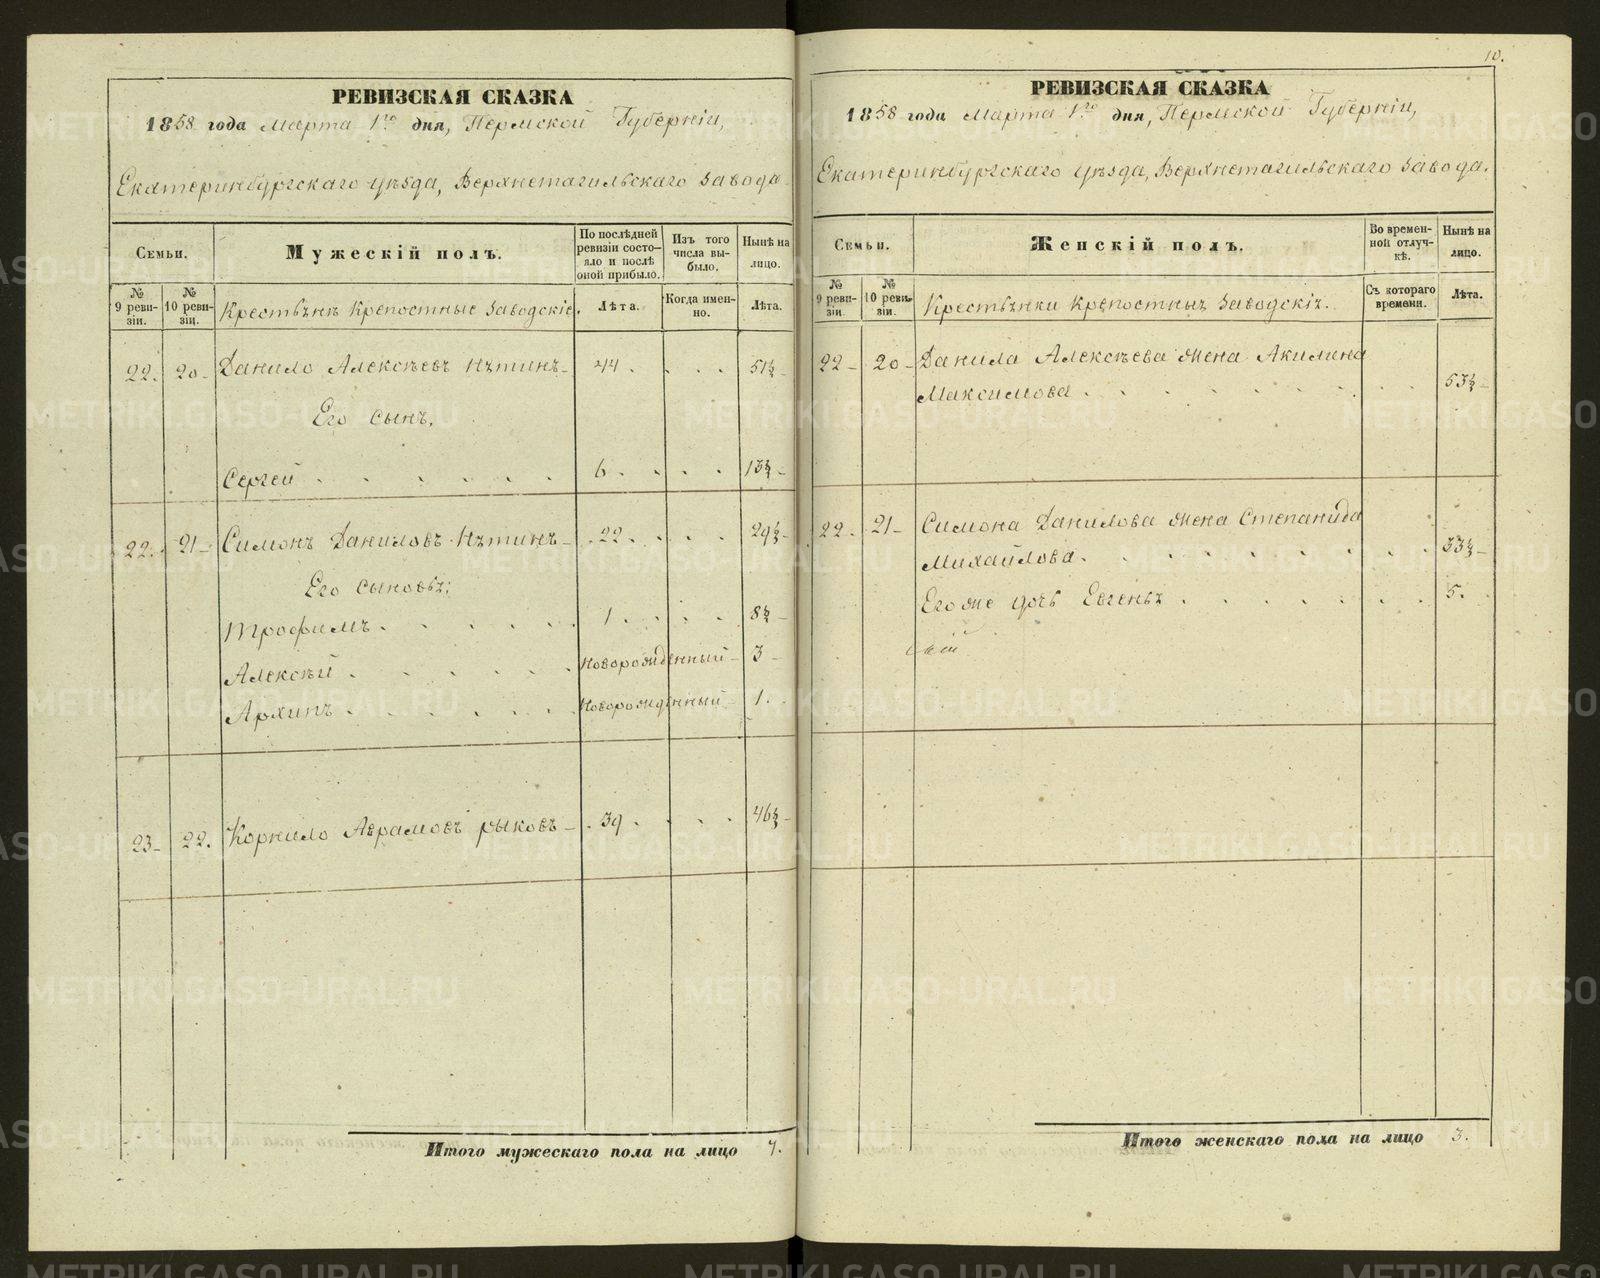 РЕВИЗСКАЯ СКАЗКА
1858 года Марта 1го дня, Пермской Губерніи,
Екатеринбургскаго Уѣзда, Верхнетагильскаго Завода
Семьи.
Мужескій полъ.
По послѣдней ревизіи состояло и послѣ оной прибыло.
Изъ того числа выбыло.
Нынѣ на лицо.
№ 9 ревизіи.
№ 10 ревизіи.
Крестьянѣ Крепостные Заводскіе.
Лѣта.
Когда именно.
Лѣта.
22. 20 Данило Алексѣевъ 44. 51½
Его сынъ,
Сергей 6. 13½
22. 21 Симонъ Даниловъ 22. 29½
Его сыновья:
Трофимъ 1. 8½
Алексѣй Новорожденный 3
Архипъ Новорожденный 1.
23 22. Корнило Аврамовъ Рыковъ 39. 46½
Итого мужескаго пола на лицо 7.
10.
РЕВИЗСКАЯ СКАЗКА
1858 года Марта 1го дня, Пермской Губерніи,
Екатеринбургскаго Уѣзда, Верхнетагильскаго Завода.
Семьи.
Женскій полъ.
Во временной отлучкѣ.
Нынѣ на лицо.
№ 9 ревизіи.
№ 10 ревизіи.
Крестьянки Крепостныя Заводскія.
Съ котораго времени.
Лѣта.
22 20 Данила Алексѣева жена Акилина
Максимова 53½
22. 21 Симона Данилова жена Степанида
Михайлова. 33½
Его же дочь Евгенья 5.
Итого женскаго пола на лицо 3.
METRIKI.GASO-URAL.RU